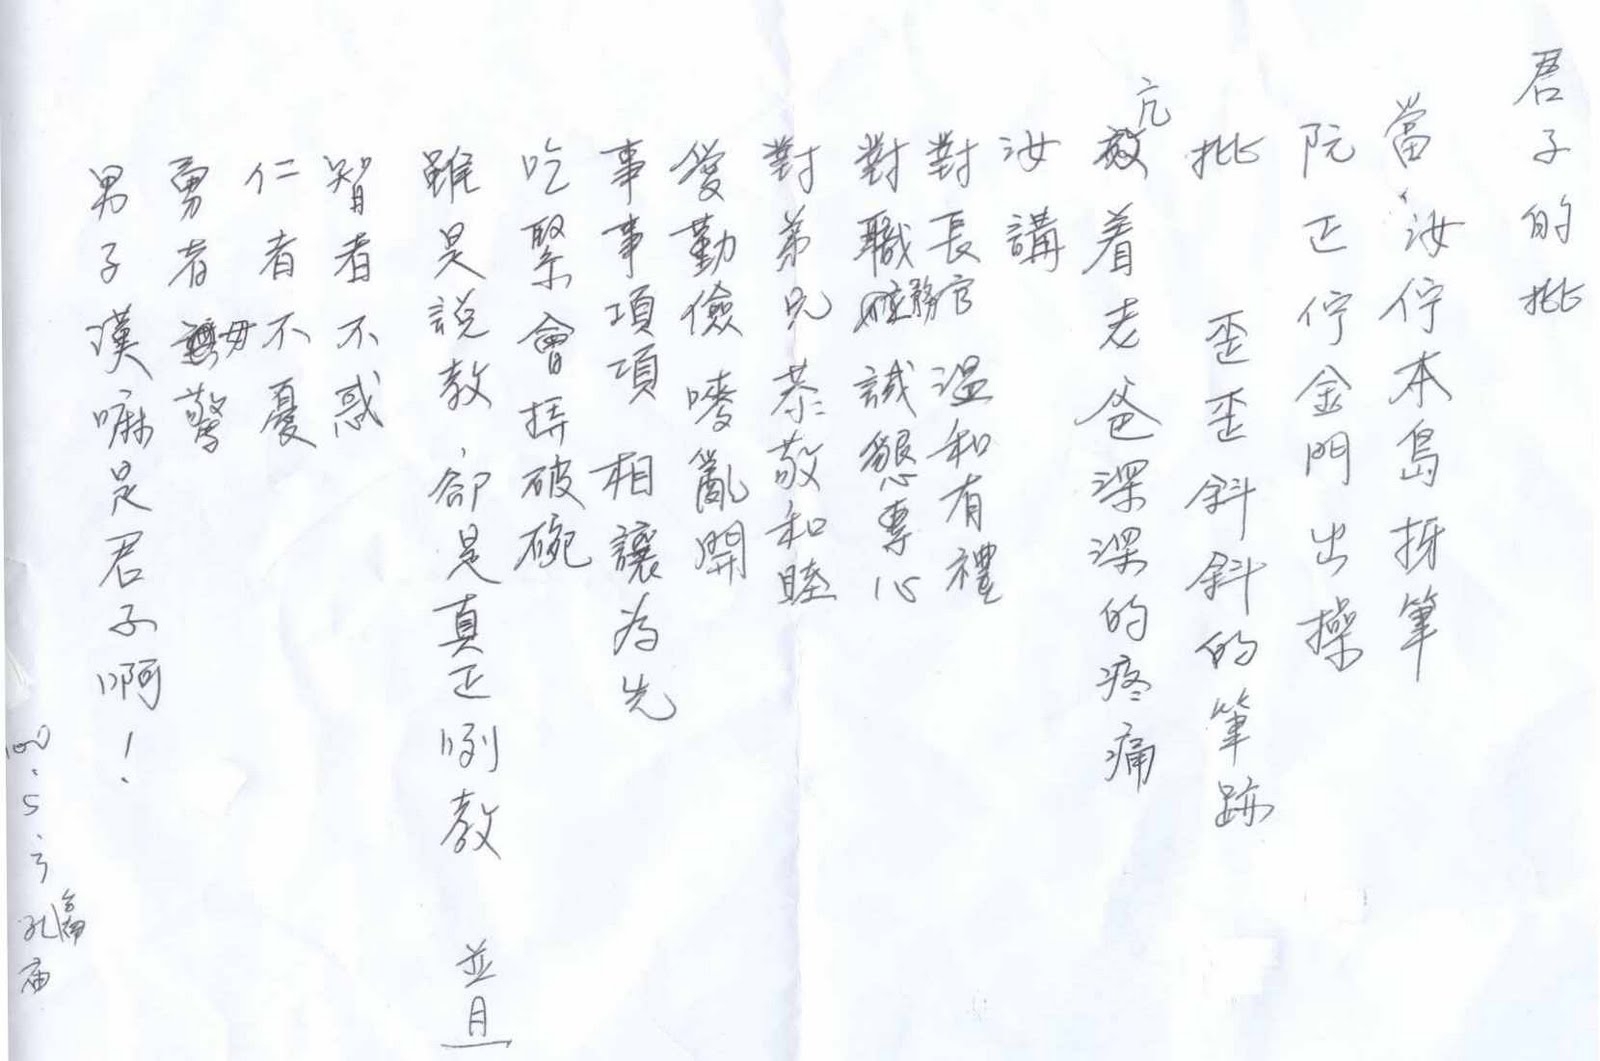 君子的批
當、汝佇本島筆
阮正佇金門出操
批 歪歪斜斜的筆跡
亢着老爸深深的疼痛
汝講
對長官溫和有禮
對職務誠懇專心
對弟兄恭敬和睦
愛勤儉嘜亂開
事事項項 相讓為先
吃緊會挵破碗
雖是說教、卻是真正咧教 普
智者不惑
仁者不憂
勇者毋驚
男子漢嘛是君子啊!
100.5.3 台南孔庙